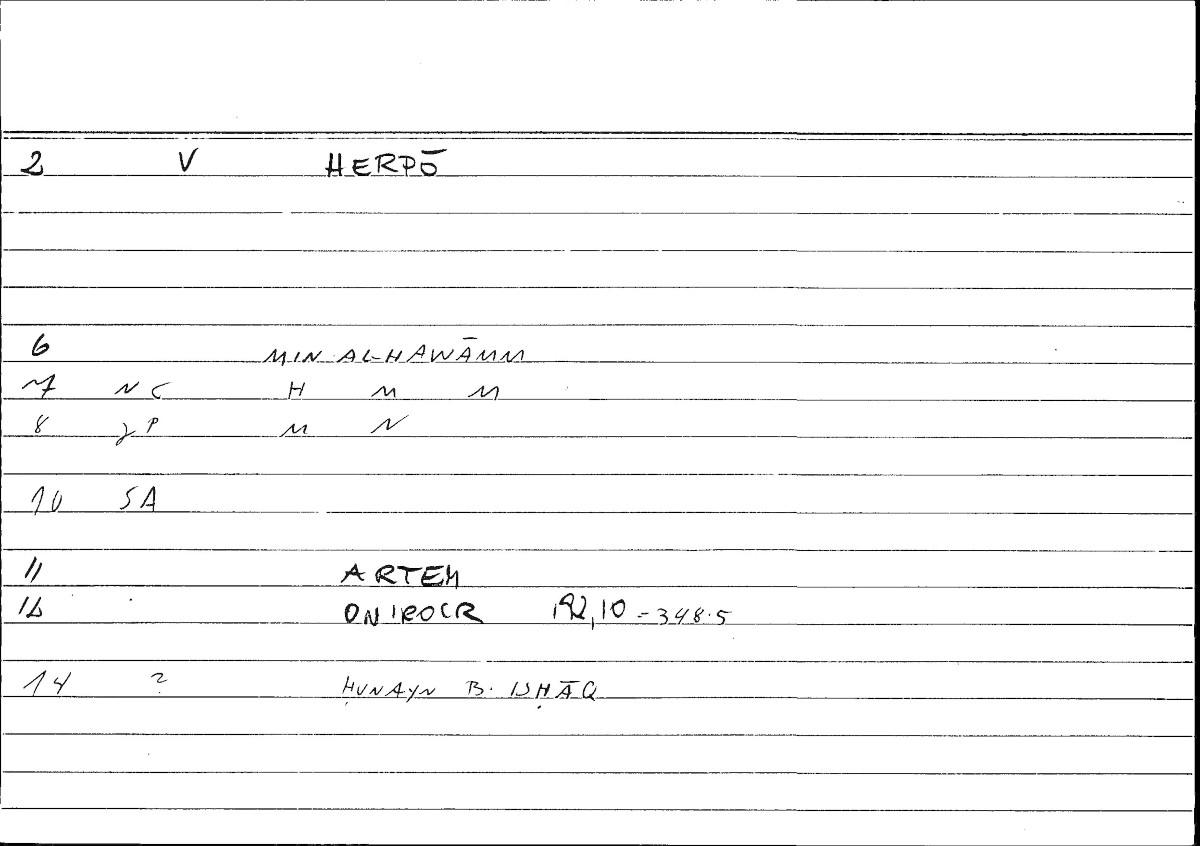 2 V HERPŌ
6 MIN AL-HAWĀMM
7 NC H M M
8 γP M N
10 SA
11 ARTEM
12 ONIROCR 192,10 = 348.5
14 ? ḤUNAYN B. ISḤĀQ